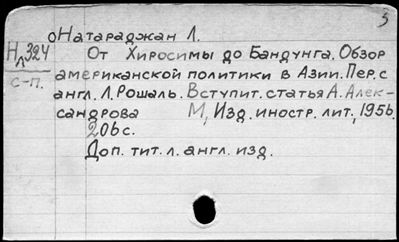 3
оНатараджан Л.
Н/л324
с-п.
От Хиросимы до Бандунга. Обзор
американской политики в Азии. Пер. с
англ. Л. Рошаль. Вступит. статья А. Алек-
сандрова М, Изд. иностр. лит, 1956.
206 с.
Доп. тит. л. англ. изд.